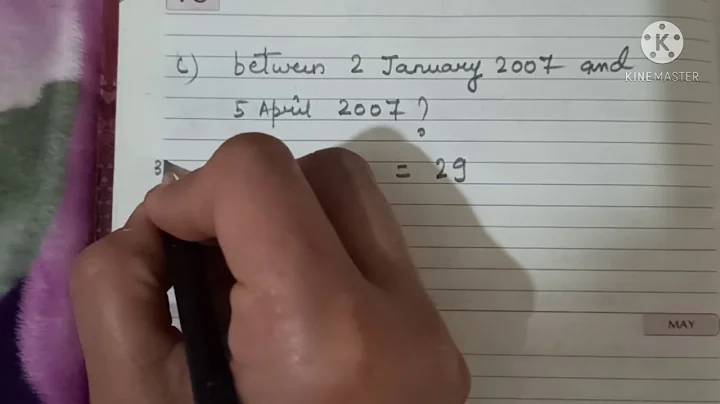 c) between 2 January 2007 and
5 April 2007?
3
= 29
MAY
K
KINEMASTER